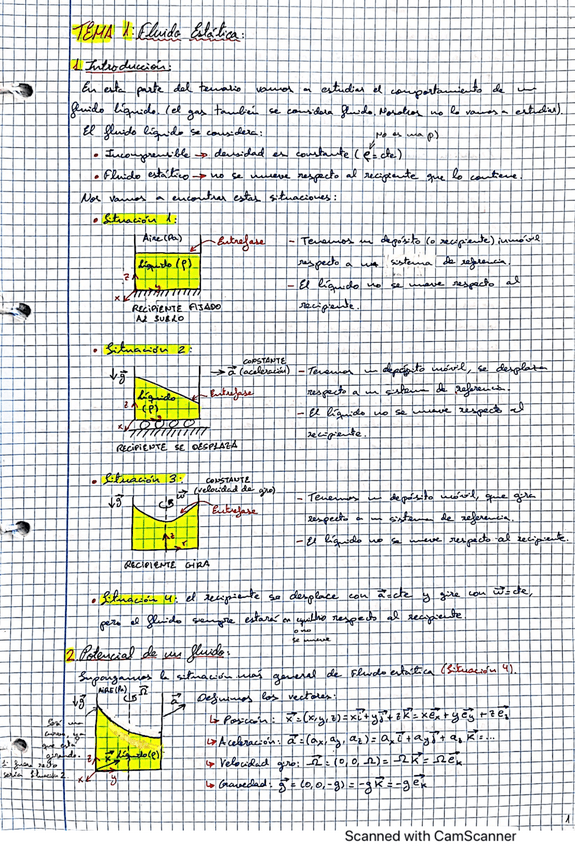 TEMA 1: Fluido Estática:
1 Introducción:
En esta parte del temario vamos a estudiar el comportamiento de un
fluido líquido. (el gas también se considera fluido. Nosotros no lo vamos a estudiar).
El fluido líquido se considera:
No es una p)
• Incompresible → densidad es constante (ρ = cte)
• Fluido estático → no se mueve respecto al recipiente que lo contiene.
Nos vamos a encontrar estas situaciones:
• Situación 1:
Aire (Pa)
Entrefase
Líquido (ρ)
z
y
x
RECIPIENTE FIJADO
AL SUELO
- Tenemos un depósito (o recipiente) inmóvil
respecto a un sistema de referencia.
- El líquido no se mueve respecto al
recipiente.
• Situación 2:
g
CONSTANTE
a (aceleración)
Entrefase
Líquido
(ρ)
z
x
RECIPIENTE SE DESPLAZA
- Tenemos un depósito móvil, se desplaza
respecto a un sistema de referencia.
- El líquido no se mueve respecto al
recipiente.
• Situación 3:
CONSTANTE
g
w (velocidad de giro)
Entrefase
z
r
RECIPIENTE GIRA
- Tenemos un depósito móvil, que gira
respecto a un sistema de referencia.
- El líquido no se mueve respecto al recipiente.
• Situación 4: el recipiente se desplace con a⃗=cte y gire con w⃗=cte,
pero el fluido siempre estará en equilibro respecto al recipiente
o no
se mueve
2 Potencial de un fluido:
Supongamos la situación más general de Fluidoestática (Situación 4).
AIRE (Pa)
g
Ω
a
Será una
curva, ya
que está
girando.
Si fuera recta
sería Situación 2.
Líquido (ρ)
z
x
x
y
Definimos los vectores:
↳ Posición: x⃗ = (x, y, z) = xi⃗ + yj⃗ + zk⃗ = xe⃗x + ye⃗y + ze⃗z
↳ Aceleración: a⃗ = (ax, ay, az) = ax i⃗ + ay j⃗ + az k⃗ = ...
↳ Velocidad giro: Ω⃗ = (0, 0, Ω) = Ωk⃗ = Ωe⃗k
↳ Gravedad: g⃗ = (0, 0, -g) = -gk⃗ = -ge⃗k
1
Scanned with CamScanner